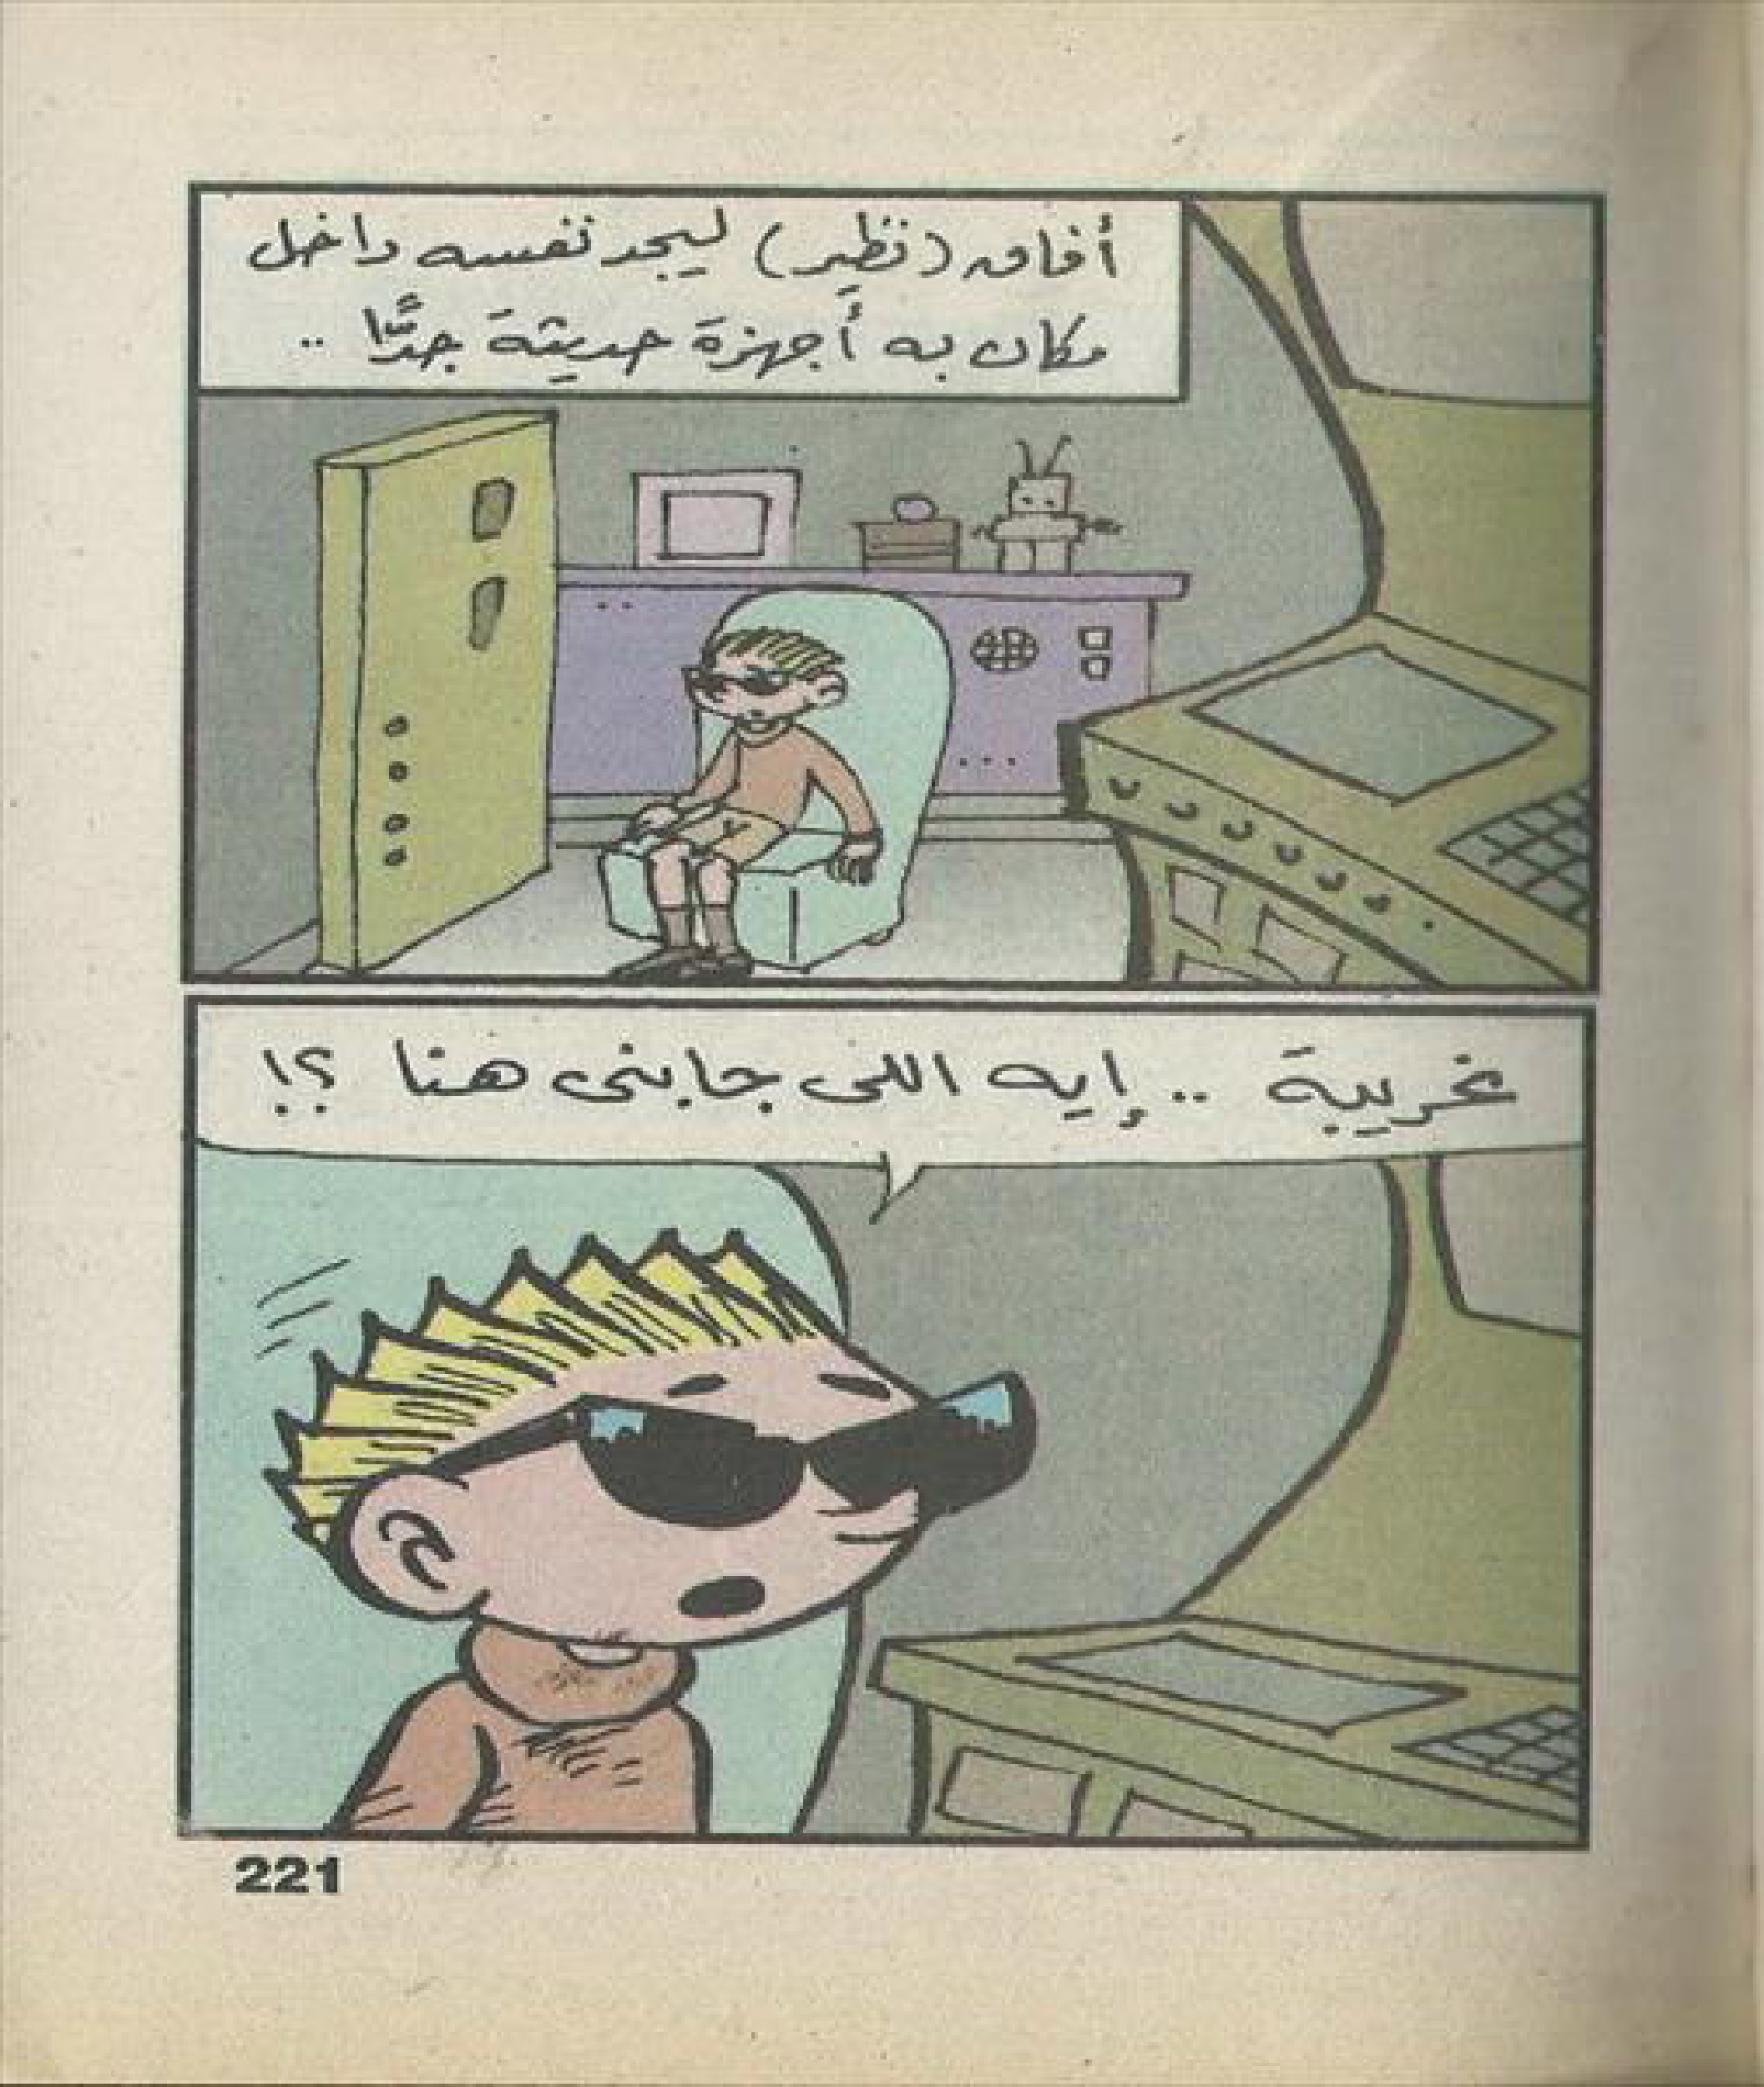 أفاق (نظير) ليجد نفسه داخل
مكان به أجهزة حديثة جدًّا ..
غريبة .. إيه اللى جابنى هنا ؟!
221